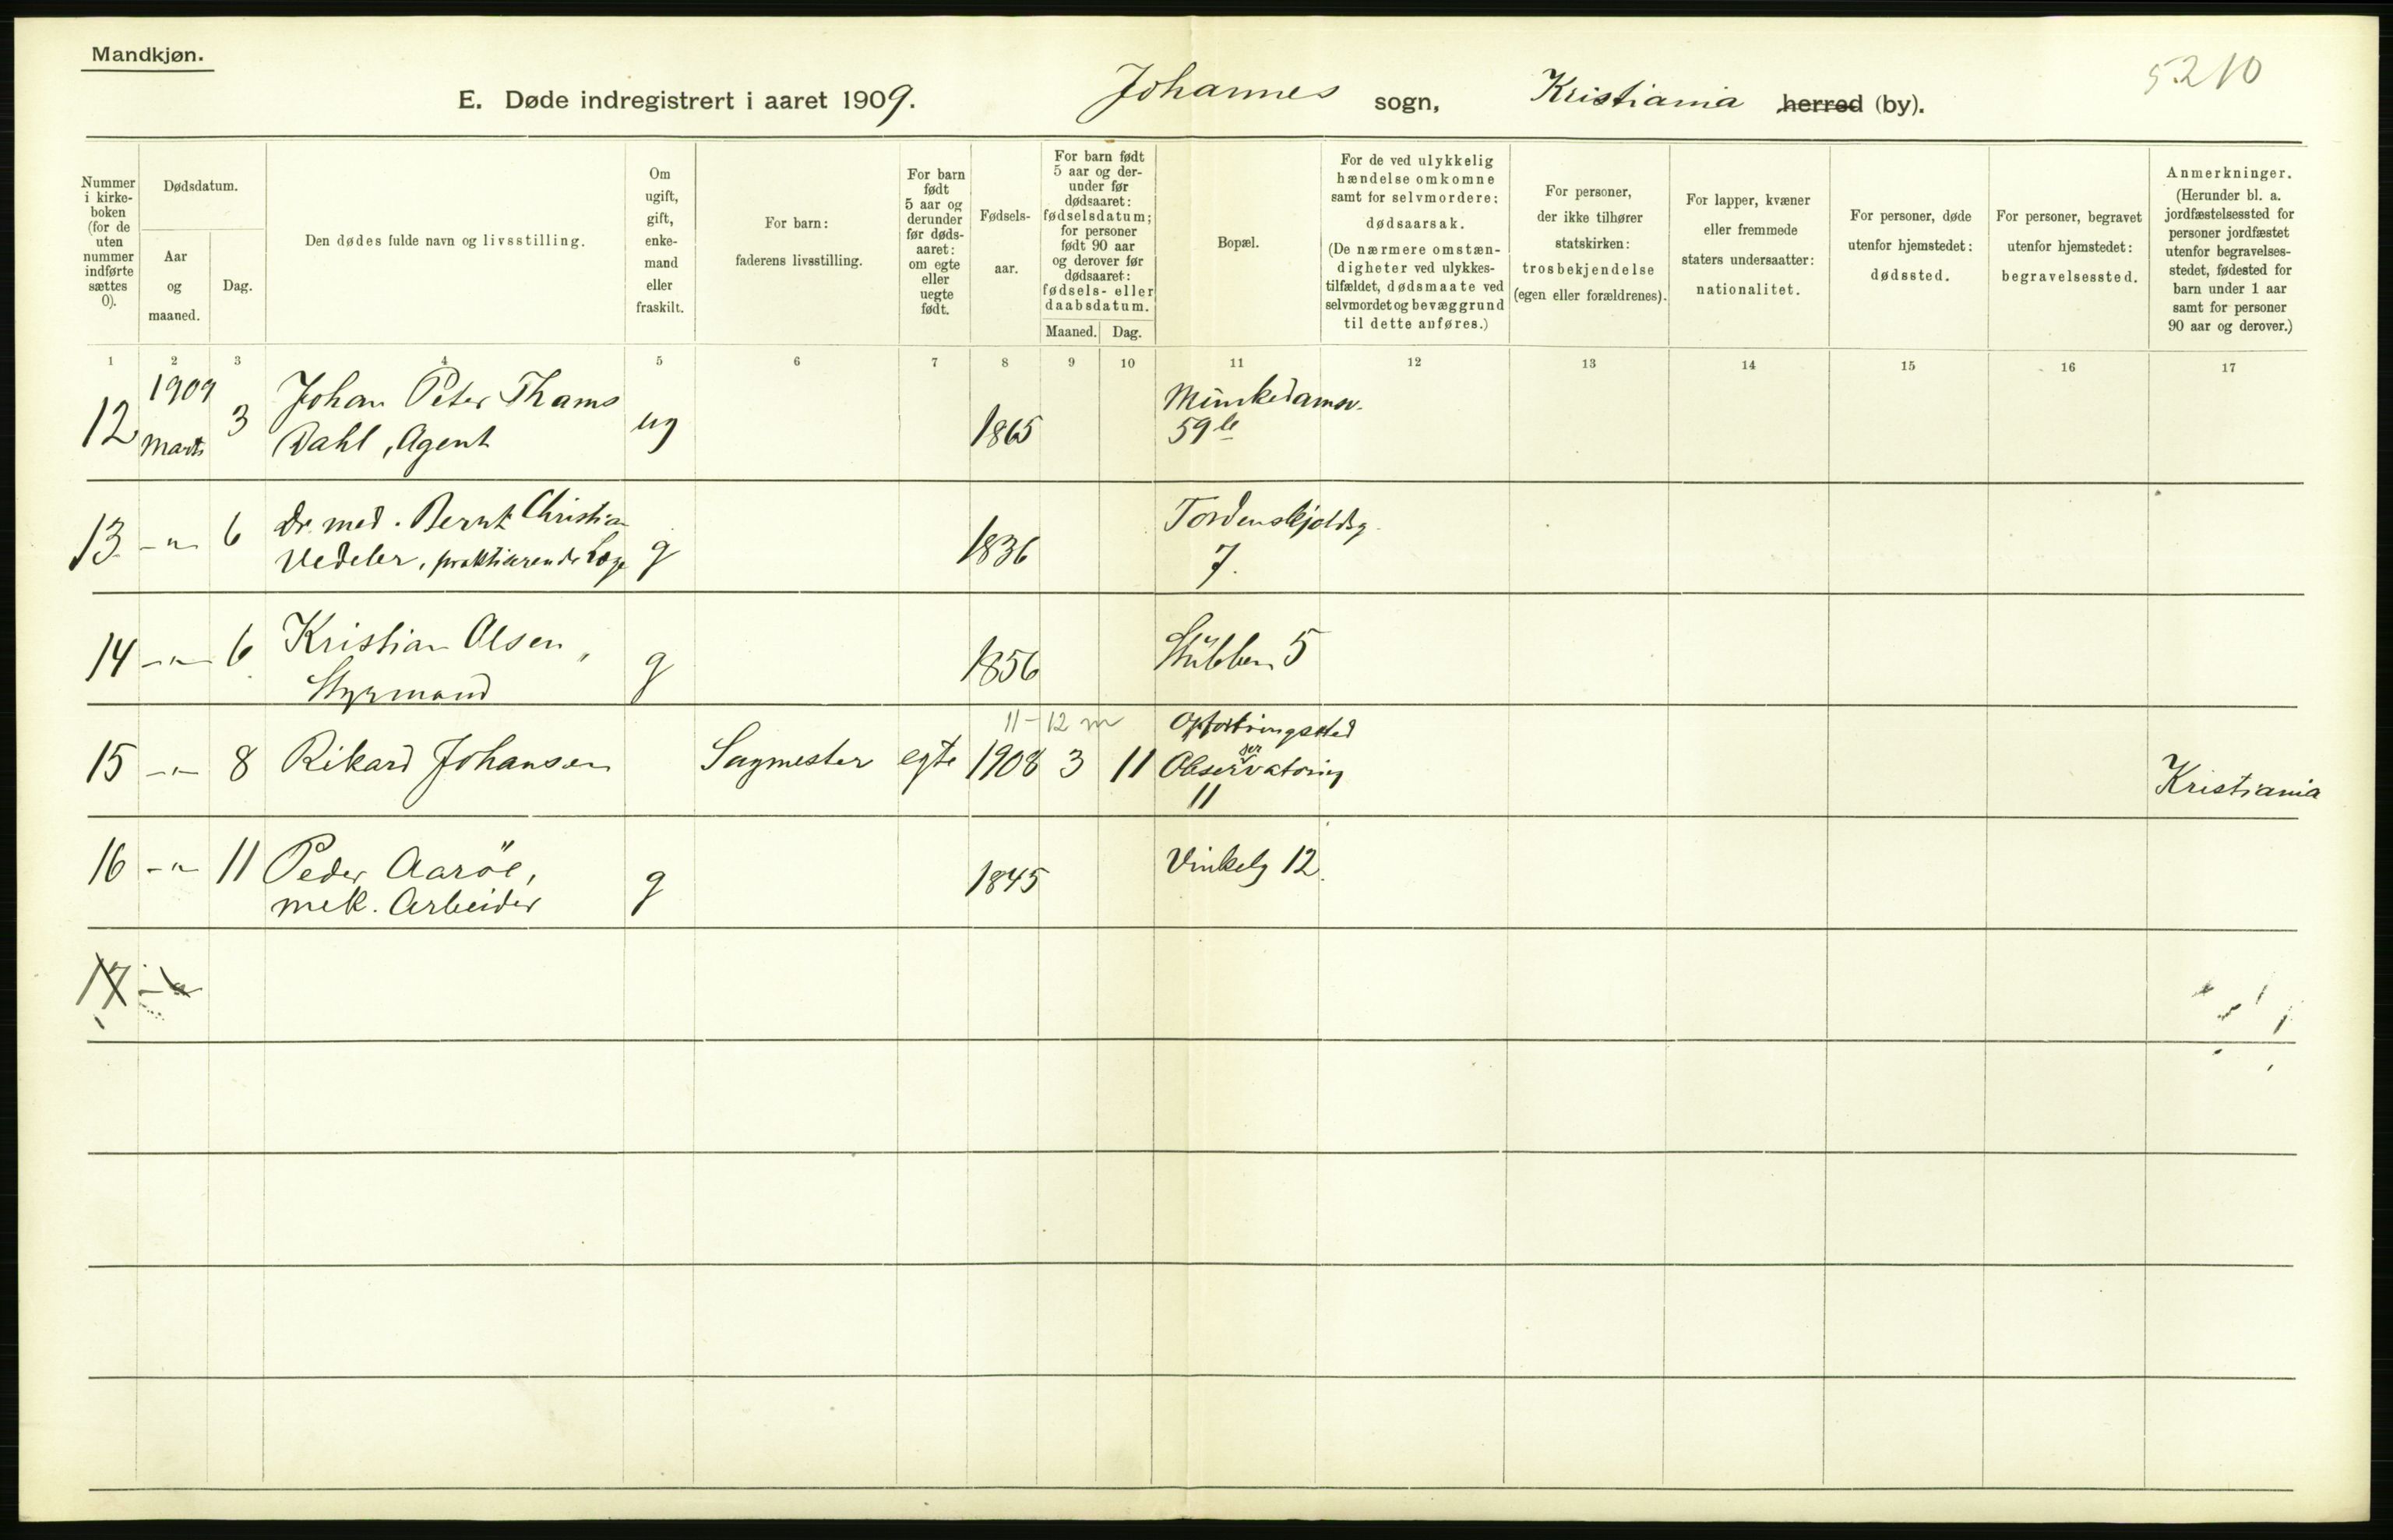 Mandkjøn.
5210
E. Døde indregistrert i aaret 1909. Johannes sogn, Kristiania herred (by).
Nummer i kirke- boken (for de uten nummer indførte sættes 0).
Dødsdatum.
Aar og maaned.
Dag.
Den dødes fulde navn og livsstilling.
Om ugift, gift, enke- mand eller fraskilt.
For barn: faderens livsstilling.
For barn født 5 aar og derunder før døds- aaret: om egte eller uegte født.
Fødsels- aar.
For barn født 5 aar og der- under før dødsaaret: fødselsdatum; for personer født 90 aar og derover før dødsaaret: fødsels- eller daabsdatum.
Maaned. Dag.
Bopæl.
For de ved ulykkelig hændelse omkomne samt for selvmordere: dødsaarsak. (De nærmere omstæn- digheter ved ulykkes- tilfældet, dødsmaate ved selvmordet og bevæggrund til dette anføres.)
For personer, der ikke tilhører statskirken: trosbekjendelse (egen eller forældrenes).
For lapper, kvæner eller fremmede staters undersaatter: nationalitet.
For personer, døde utenfor hjemstedet: dødssted.
For personer, begravet utenfor hjemstedet: begravelsessted.
Anmerkninger. (Herunder bl. a. jordfæstelsessted for personer jordfæstet utenfor begravelses- stedet, fødested for barn under 1 aar samt for personer 90 aar og derover.)
1 2 3 4 5 6 7 8 9 10 11 12 13 14 15 16 17
1909 Johan Peter Thams Munkedamsv.
12 Marts 3 Dahl, Agent ug 1865 59 b
13 -"- 6 Dr. med. Bernt Christian Tordenskjoldsg.
Vedeler, praktiserende Læge g 1836 7.
14 -"- 6 Kristian Olsen, Stubben 5
Styrmand g 1856
11-12 m Opfostringssted
15 -"- 8 Rikard Johansen Sagmester egte 1908 3 11 Observatorieg Kristiania
11
16 -"- 11 Peder Aaröe, Vinkelg 12.
mek. Arbeider g 1845
17 -"-